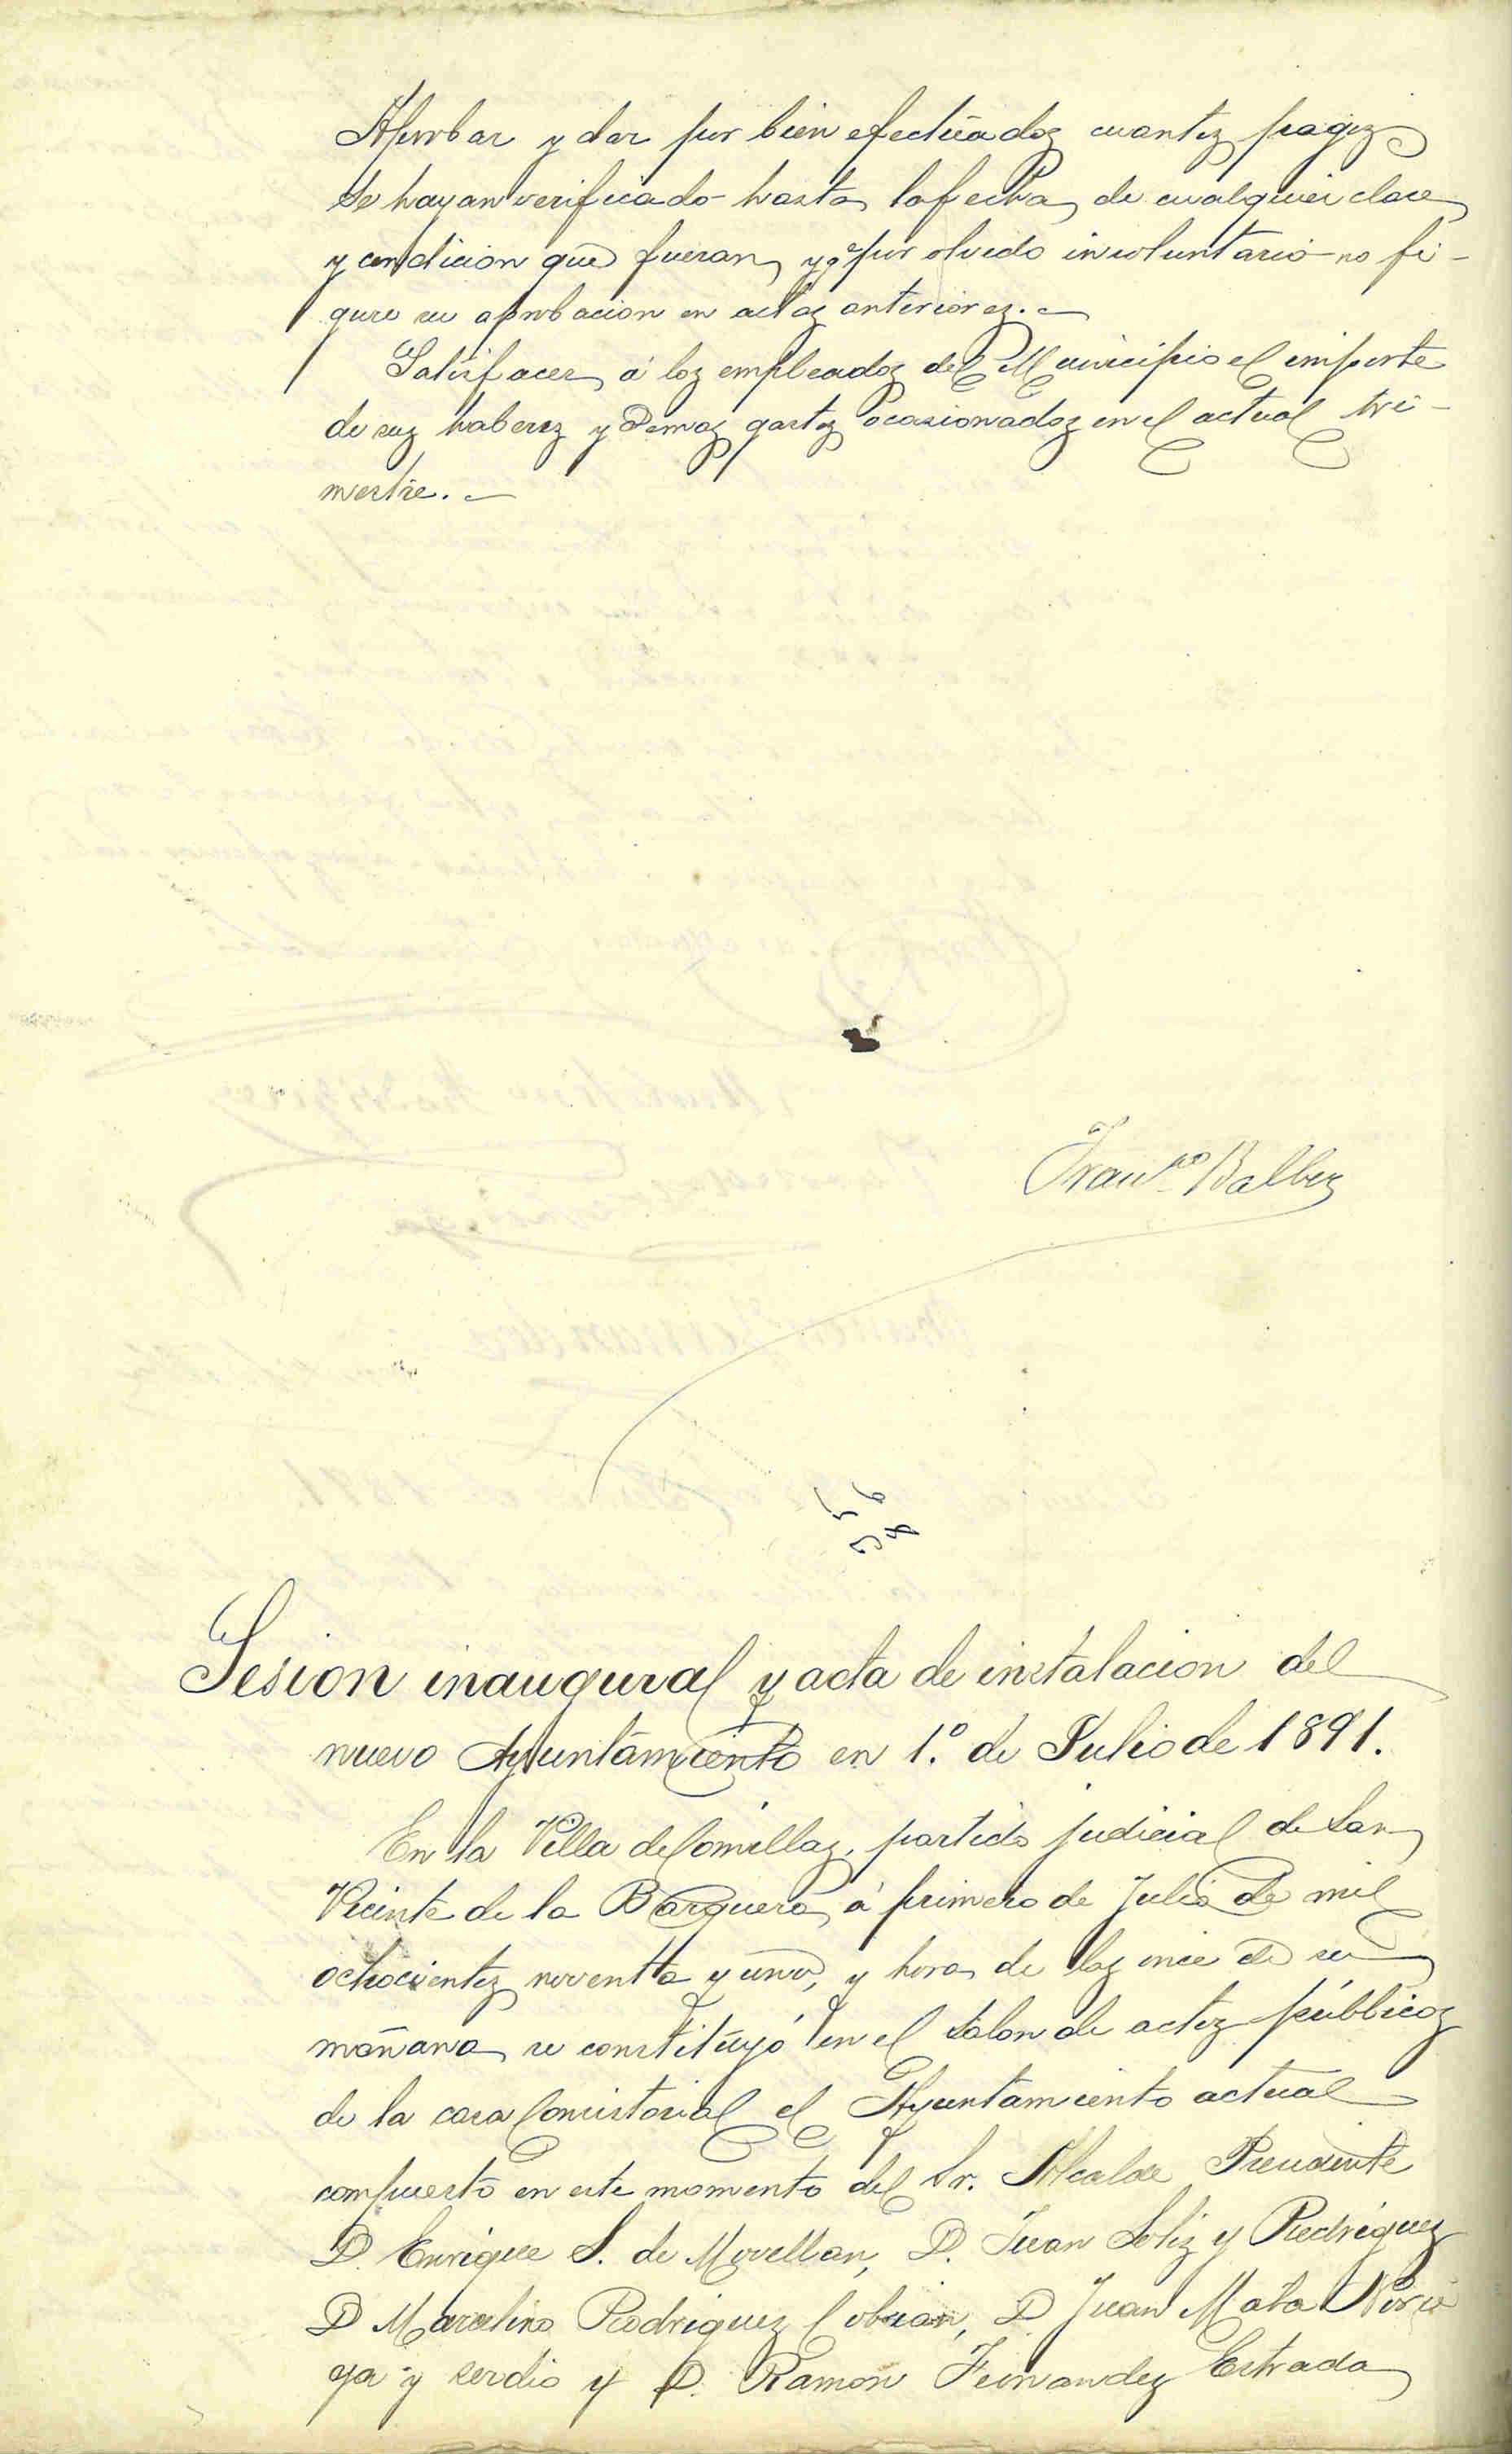 Aprobar y dar por bien efectuados cuantos pagos
se hayan verificado hasta la fecha de cualquier clase
y condicion que fueran y qe por olvido involuntario no fi-
gure su aprobacion en actas anteriores.
Satisfacer á los empleados del Municipio el importe
de sus haberes y demas gastos ocasionados en el actual tri-
mestre.
Franco Balbes
Sesion inaugural y acta de instalacion del
nuevo Ayuntamiento en 1.º de Julio de 1891.
En la Villa de Comillas, partido judicial de San
Vicente de la Barquera, á primero de Julio de mil
ochocientos noventa y uno, y hora de las once de su
mañana se constituyó en el Salon de actos públicos
de la casa Consistorial el Ayuntamiento actual
compuesto en este momento del Sr. Alcalde Presidente
D. Enrique S. de Movellan, D. Juan Soliz y Rodriguez
D Marcelino Rodriguez Cobian, D. Juan Mata Norie
ga y serdio y D. Ramon Fernandez Estrada